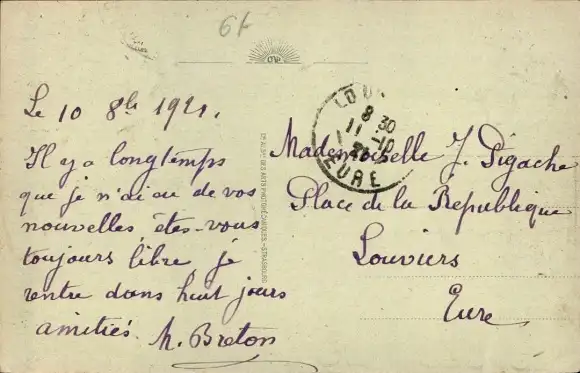 6f
Le 10 8bre 1921.
Il y a longtemps
que je n'ai eu de vos
nouvelles, êtes-vous
toujours libre je
rentre dans huit jours
amitiés. M. Breton
LOUV
8 30
11 - 10
EURE
Mademoiselle J. Pigache
Place de la Republique
Louviers
Eure